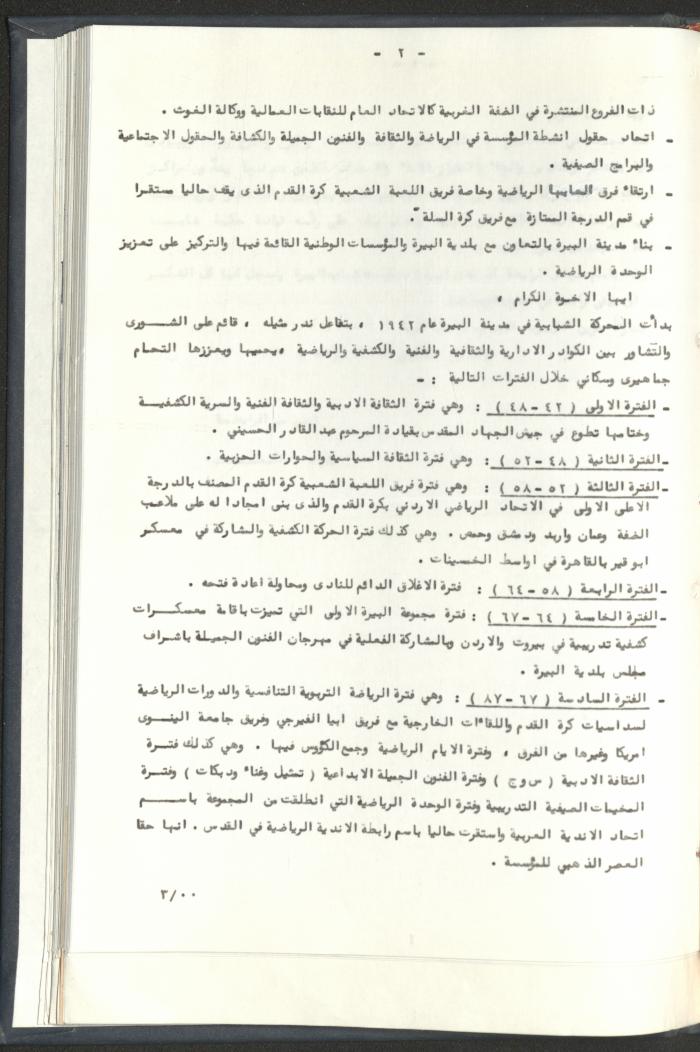 - ٢ -
ذات الفروع المنتشرة في الضفة الغربية كالاتحاد العام للنقابات العمالية ووكالة الغوث .
- اتحاد حقول انشطة المؤسسة في الرياضة والثقافة والفنون الجميلة والكشافة والحقول الاجتماعية
والبرامج الصيفية .
- ارتقاء فرق العابها الرياضية وخاصة فريق اللعبة الشعبية كرة القدم الذى يقف حاليا مستقرا
في قمم الدرجة الممتازة مع فريق كرة السلة .
- بناء مدينة البيرة بالتعاون مع بلدية البيرة والمؤسسات الوطنية القائمة فيها والتركيز على تعزيز
الوحدة الرياضية .
ايها الاخوة الكرام ،
بدأت الحركة الشبابية في مدينة البيرة عام ١٩٤٢ ، بتفاعل ندر مثيله ، قائم على الشــورى
والتشاور بين الكوادر الادارية والثقافية والفنية والكشفية والرياضية ، يحميها ويعززها التحام
جماهيرى وسكاني خلال الفترات التالية : -
- الفترة الاولى ( ٤٢ - ٤٨ ) : وهي فترة الثقافة الادبية والثقافة الفنية والسرية الكشفيــة
وختامها تطوع في جيش الجهاد المقدس بقيادة المرحوم عبد القادر الحسيني .
- الفترة الثانية ( ٤٨ - ٥٢ ) : وهي فترة الثقافة السياسية والحوارات الحزبية .
- الفترة الثالثة ( ٥٢ - ٥٨ ) : وهي فترة فريق اللعبة الشعبية كرة القدم المصنف بالدرجة
الاعلى الاولى في الاتحاد الرياضي الاردني بكرة القدم والذى بنى امجادا له على ملاعب
الضفة وعمان واربد ودمشق وحمص . وهي كذلك فترة الحركة الكشفية والمشاركة في معسكر
ابو قير بالقاهرة في اواسط الخمسينات .
- الفترة الرابعة ( ٥٨ - ٦٤ ) : فترة الاغلاق الدائم للنادى ومحاولة اعادة فتحه .
- الفترة الخامسة ( ٦٤ - ٦٧ ) : فترة مجموعة البيرة الاولى التي تميزت باقامة معسكــرات
كشفية تدريبية في بيروت والاردن وبالمشاركة الفعلية في مهرجان الفنون الجميلة باشراف
مجلس بلدية البيرة .
- الفترة السادسة ( ٦٧ - ٨٧ ) : وهي فترة الرياضة التربوية التنافسية والدورات الرياضية
لسداسيات كرة القدم واللقاءات الخارجية مع فريق ابيا الفيرجي وفريق جامعة الينــوى
امريكا وغيرها من الفرق ، وفترة الايام الرياضية وجمع الكؤوس فيها . وهي كذلك فتــرة
الثقافة الادبية ( س و ج ) وفترة الفنون الجميلة الابداعية ( تمثيل وغناء ودبكات ) وفتــرة
المخيمات الصيفية التدريبية وفترة الوحدة الرياضية التي انطلقت من المجموعة باســم
اتحاد الاندية العربية واستقرت حاليا باسم رابطة الاندية الرياضية في القدس . انها حقا
العصر الذهبي للمؤسسة .
٣/٠٠